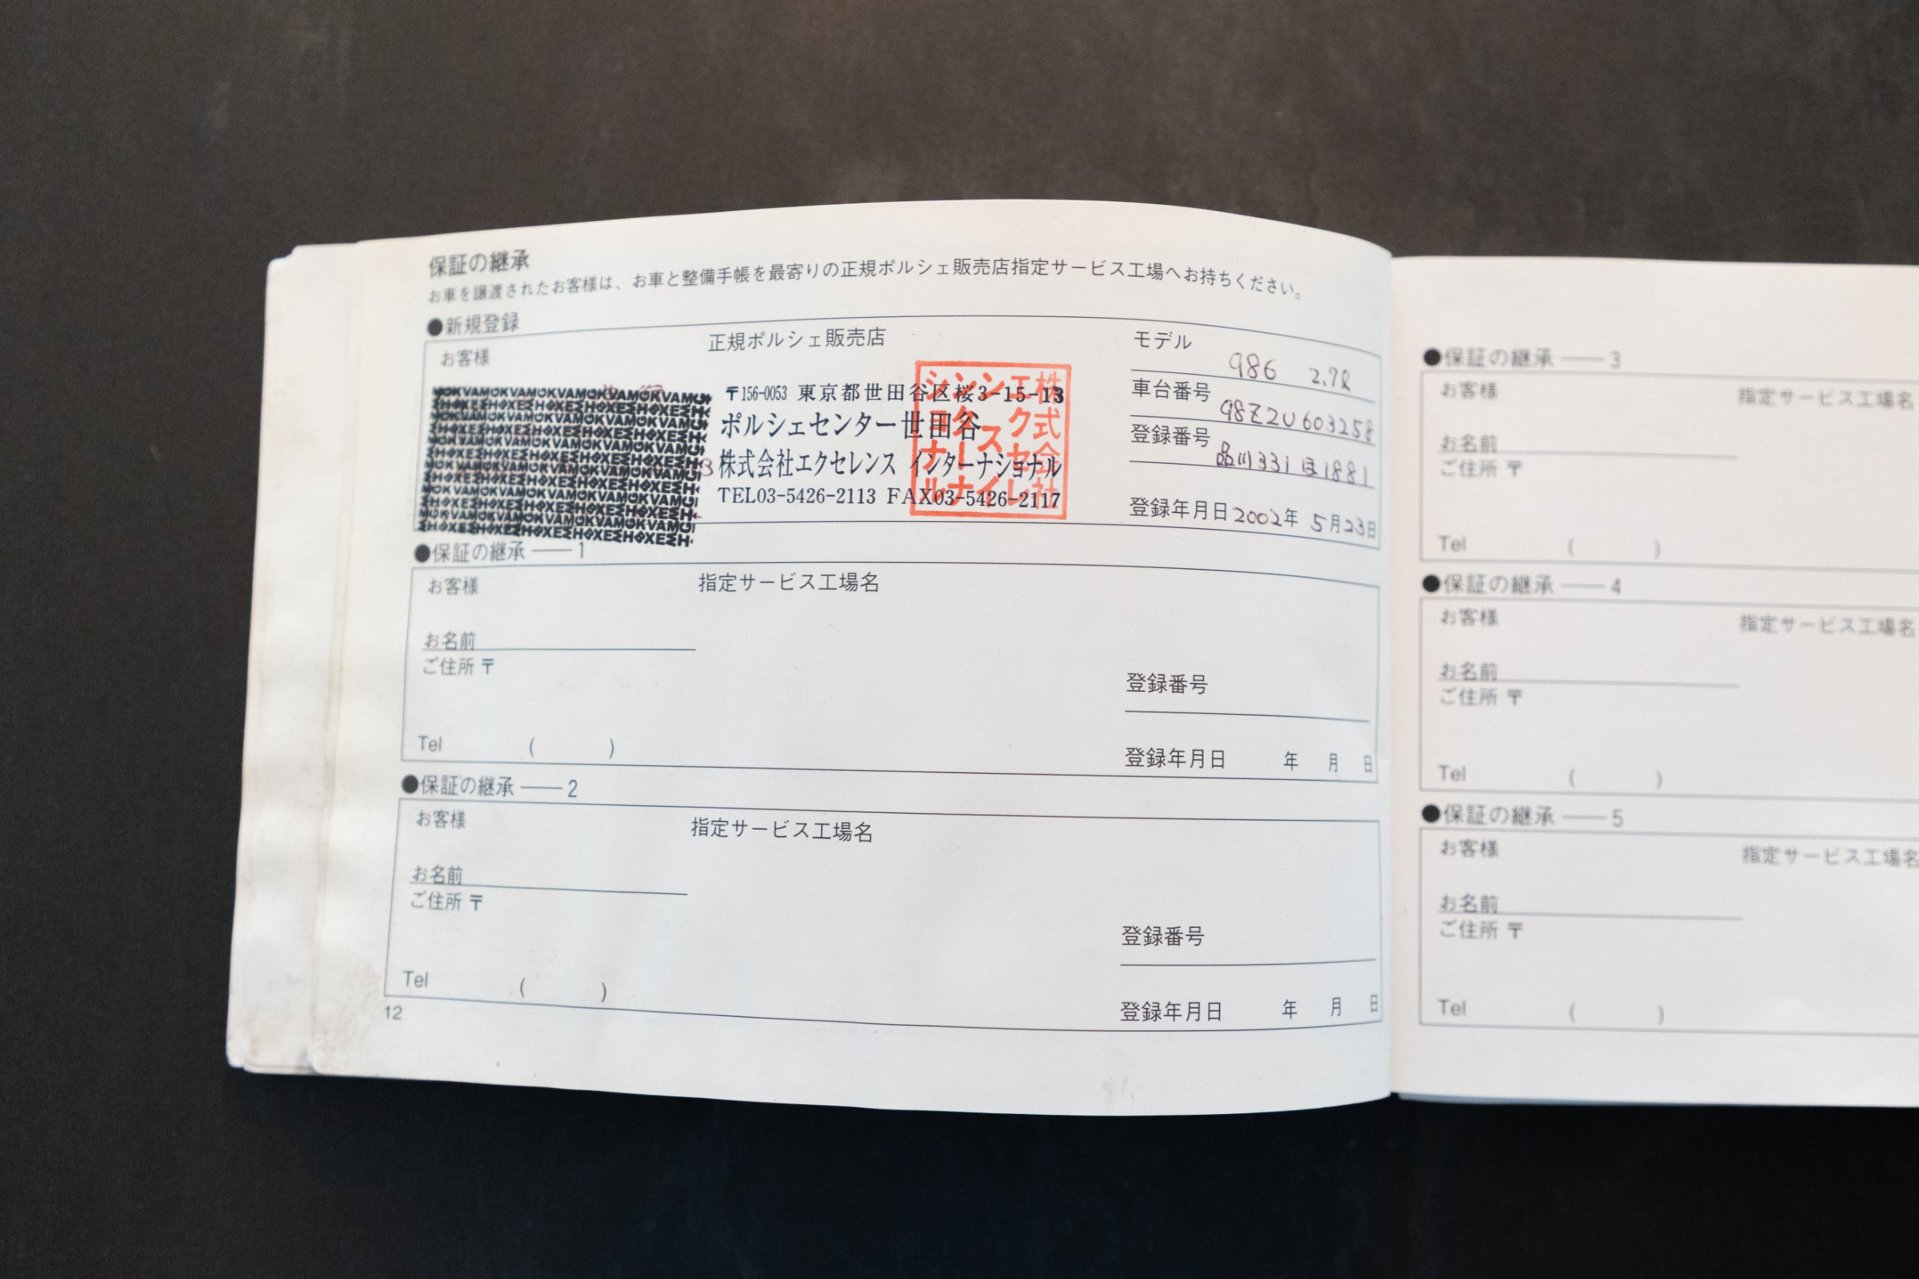 保証の継承
お車を譲渡されたお客様は、お車と整備手帳を最寄りの正規ポルシェ販売店指定サービス工場へお持ちください。
●新規登録
お客様
正規ポルシェ販売店
〒156-0053 東京都世田谷区桜3-15-13
ポルシェセンター世田谷
株式会社エクセレンス インターナショナル
TEL03-5426-2113 FAX03-5426-2117
モデル 986 2.7ℓ
車台番号 98Z2U603258
登録番号 品川331ほ1881
登録年月日 2002年 5月23日
●保証の継承 —— 1
お客様
指定サービス工場名
お名前
ご住所 〒
登録番号
Tel ( )
登録年月日 年 月 日
●保証の継承 —— 2
お客様
指定サービス工場名
お名前
ご住所 〒
登録番号
Tel ( )
登録年月日 年 月 日
12
●保証の継承 —— 3
お客様
指定サービス工場名
お名前
ご住所 〒
Tel ( )
●保証の継承 —— 4
お客様
指定サービス工場名
お名前
ご住所 〒
Tel ( )
●保証の継承 —— 5
お客様
指定サービス工場名
お名前
ご住所 〒
Tel ( )